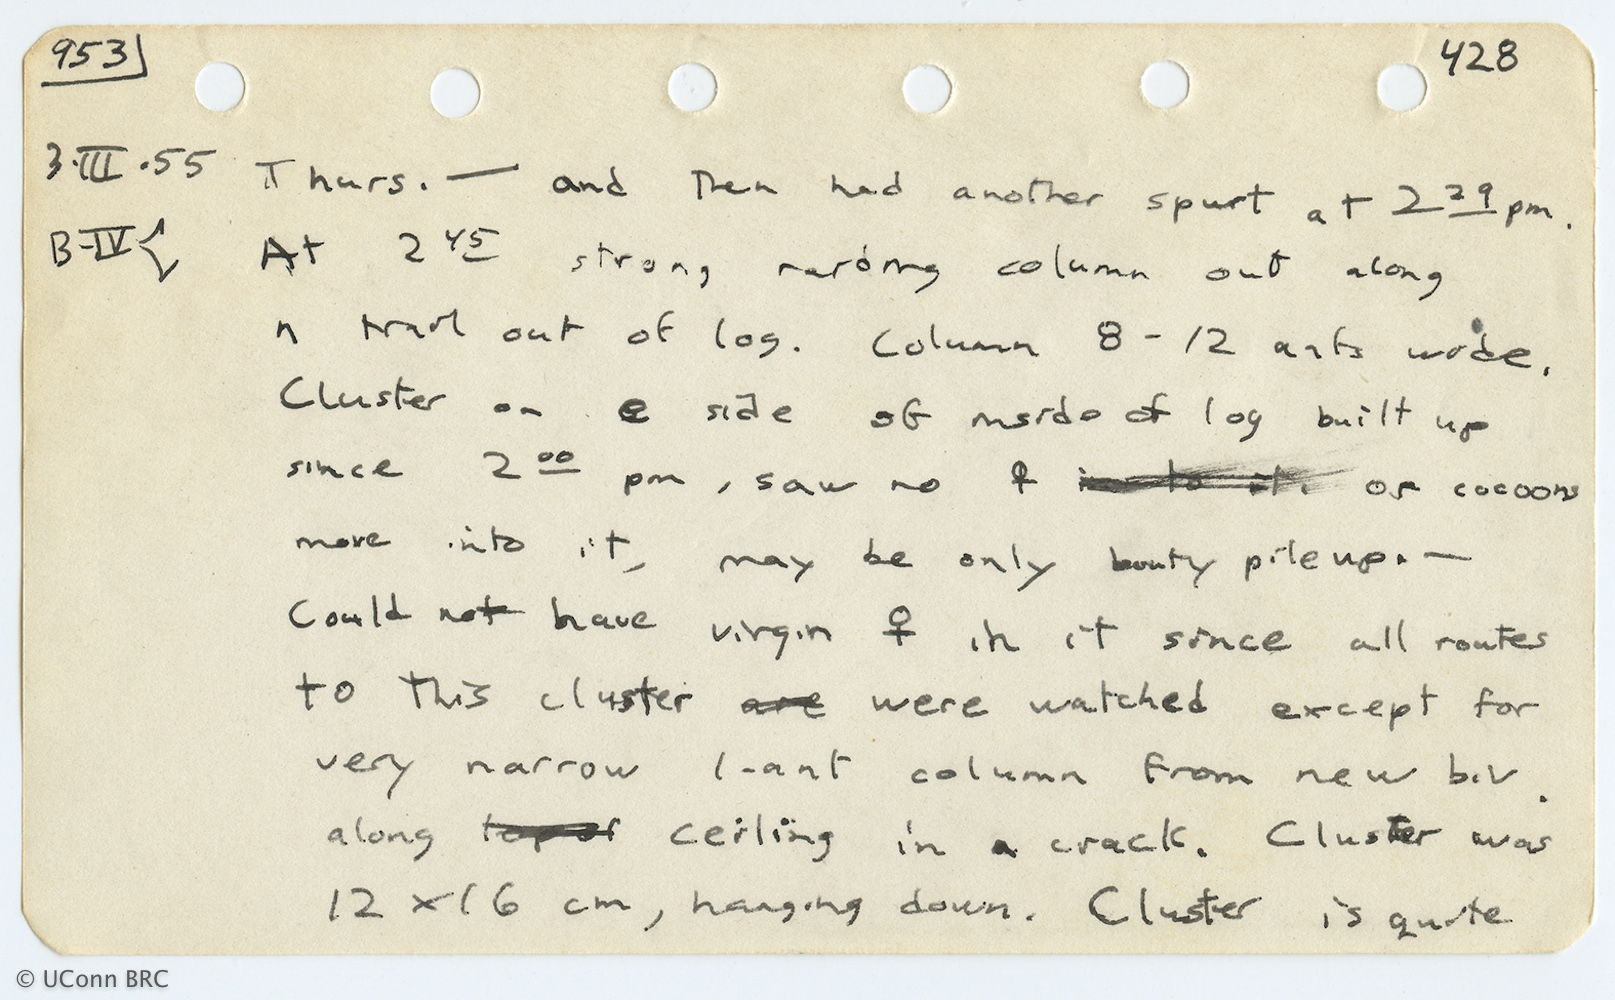 953 428
3·III·55 Thurs. — and then had another spurt at 2 29 pm.
B-IV At 2 45 strong raiding column out along
n trail out of log. Column 8-12 ants wide.
Cluster on e side of inside of log built up
since 2 00 pm, saw no ♀ into it. or cocoons
move into it, may be only booty pile up. —
Could not have virgin ♀ in it since all routes
to this cluster are were watched except for
very narrow 1-ant column from new biv.
along top of ceiling in a crack. Cluster was
12 x 16 cm, hanging down. Cluster is quite
© UConn BRC